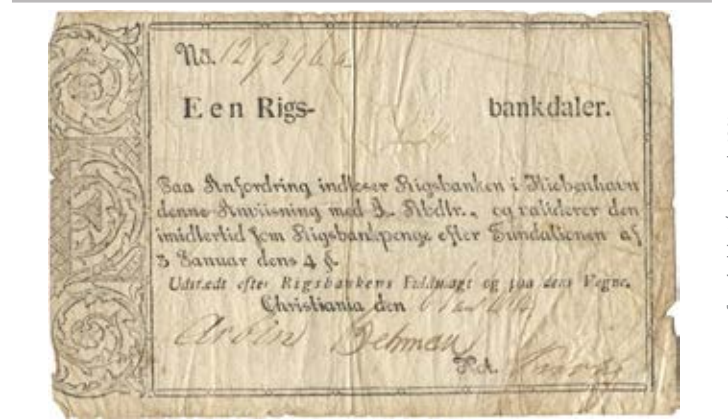 No. 129396
Een Rigs- bankdaler.
Paa Anfordring indløser Rigsbanken i Kiøbenhavn
denne Anviisning med 1 Rbdlr., og validerer den
imidlertid som Rigsbankpenge efter Fundationen af
5 Januar dens 4 §.
Udstædt efter Rigsbankens Fuldmagt og paa dens Vegne.
Christiania den